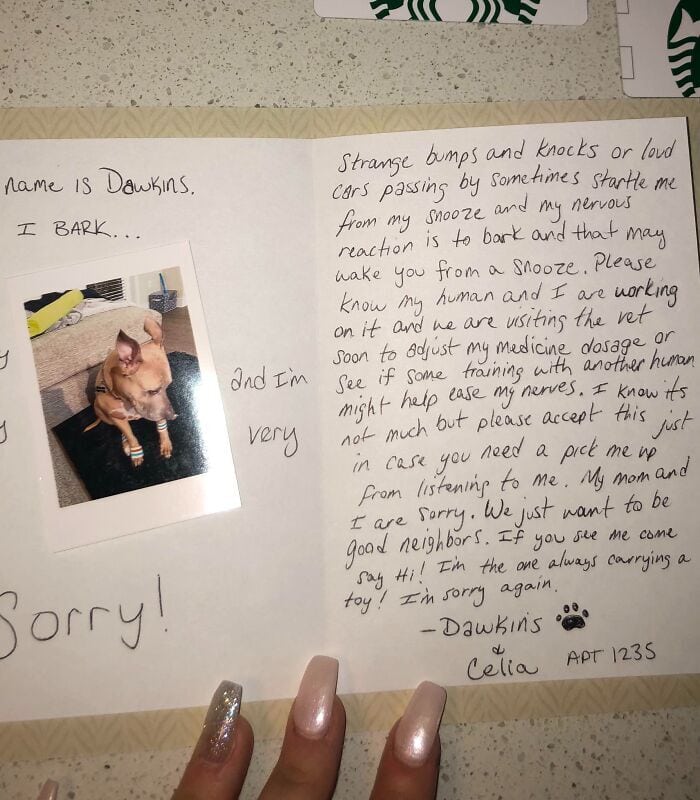 name is Dawkins.
I BARK...
y
and I'm
y
very
Sorry!
Strange bumps and knocks or loud
cars passing by sometimes startle me
from my snooze and my nervous
reaction is to bark and that may
wake you from a snooze. Please
know my human and I are working
on it and we are visiting the vet
soon to adjust my medicine dosage or
see if some training with another human
might help ease my nerves. I know its
not much but please accept this just
in case you need a pick me up
from listening to me. My mom and
I are sorry. We just want to be
good neighbors. If you see me come
say Hi! I'm the one always carrying a
toy! I'm sorry again.
-Dawkins
&
Celia APT 1235